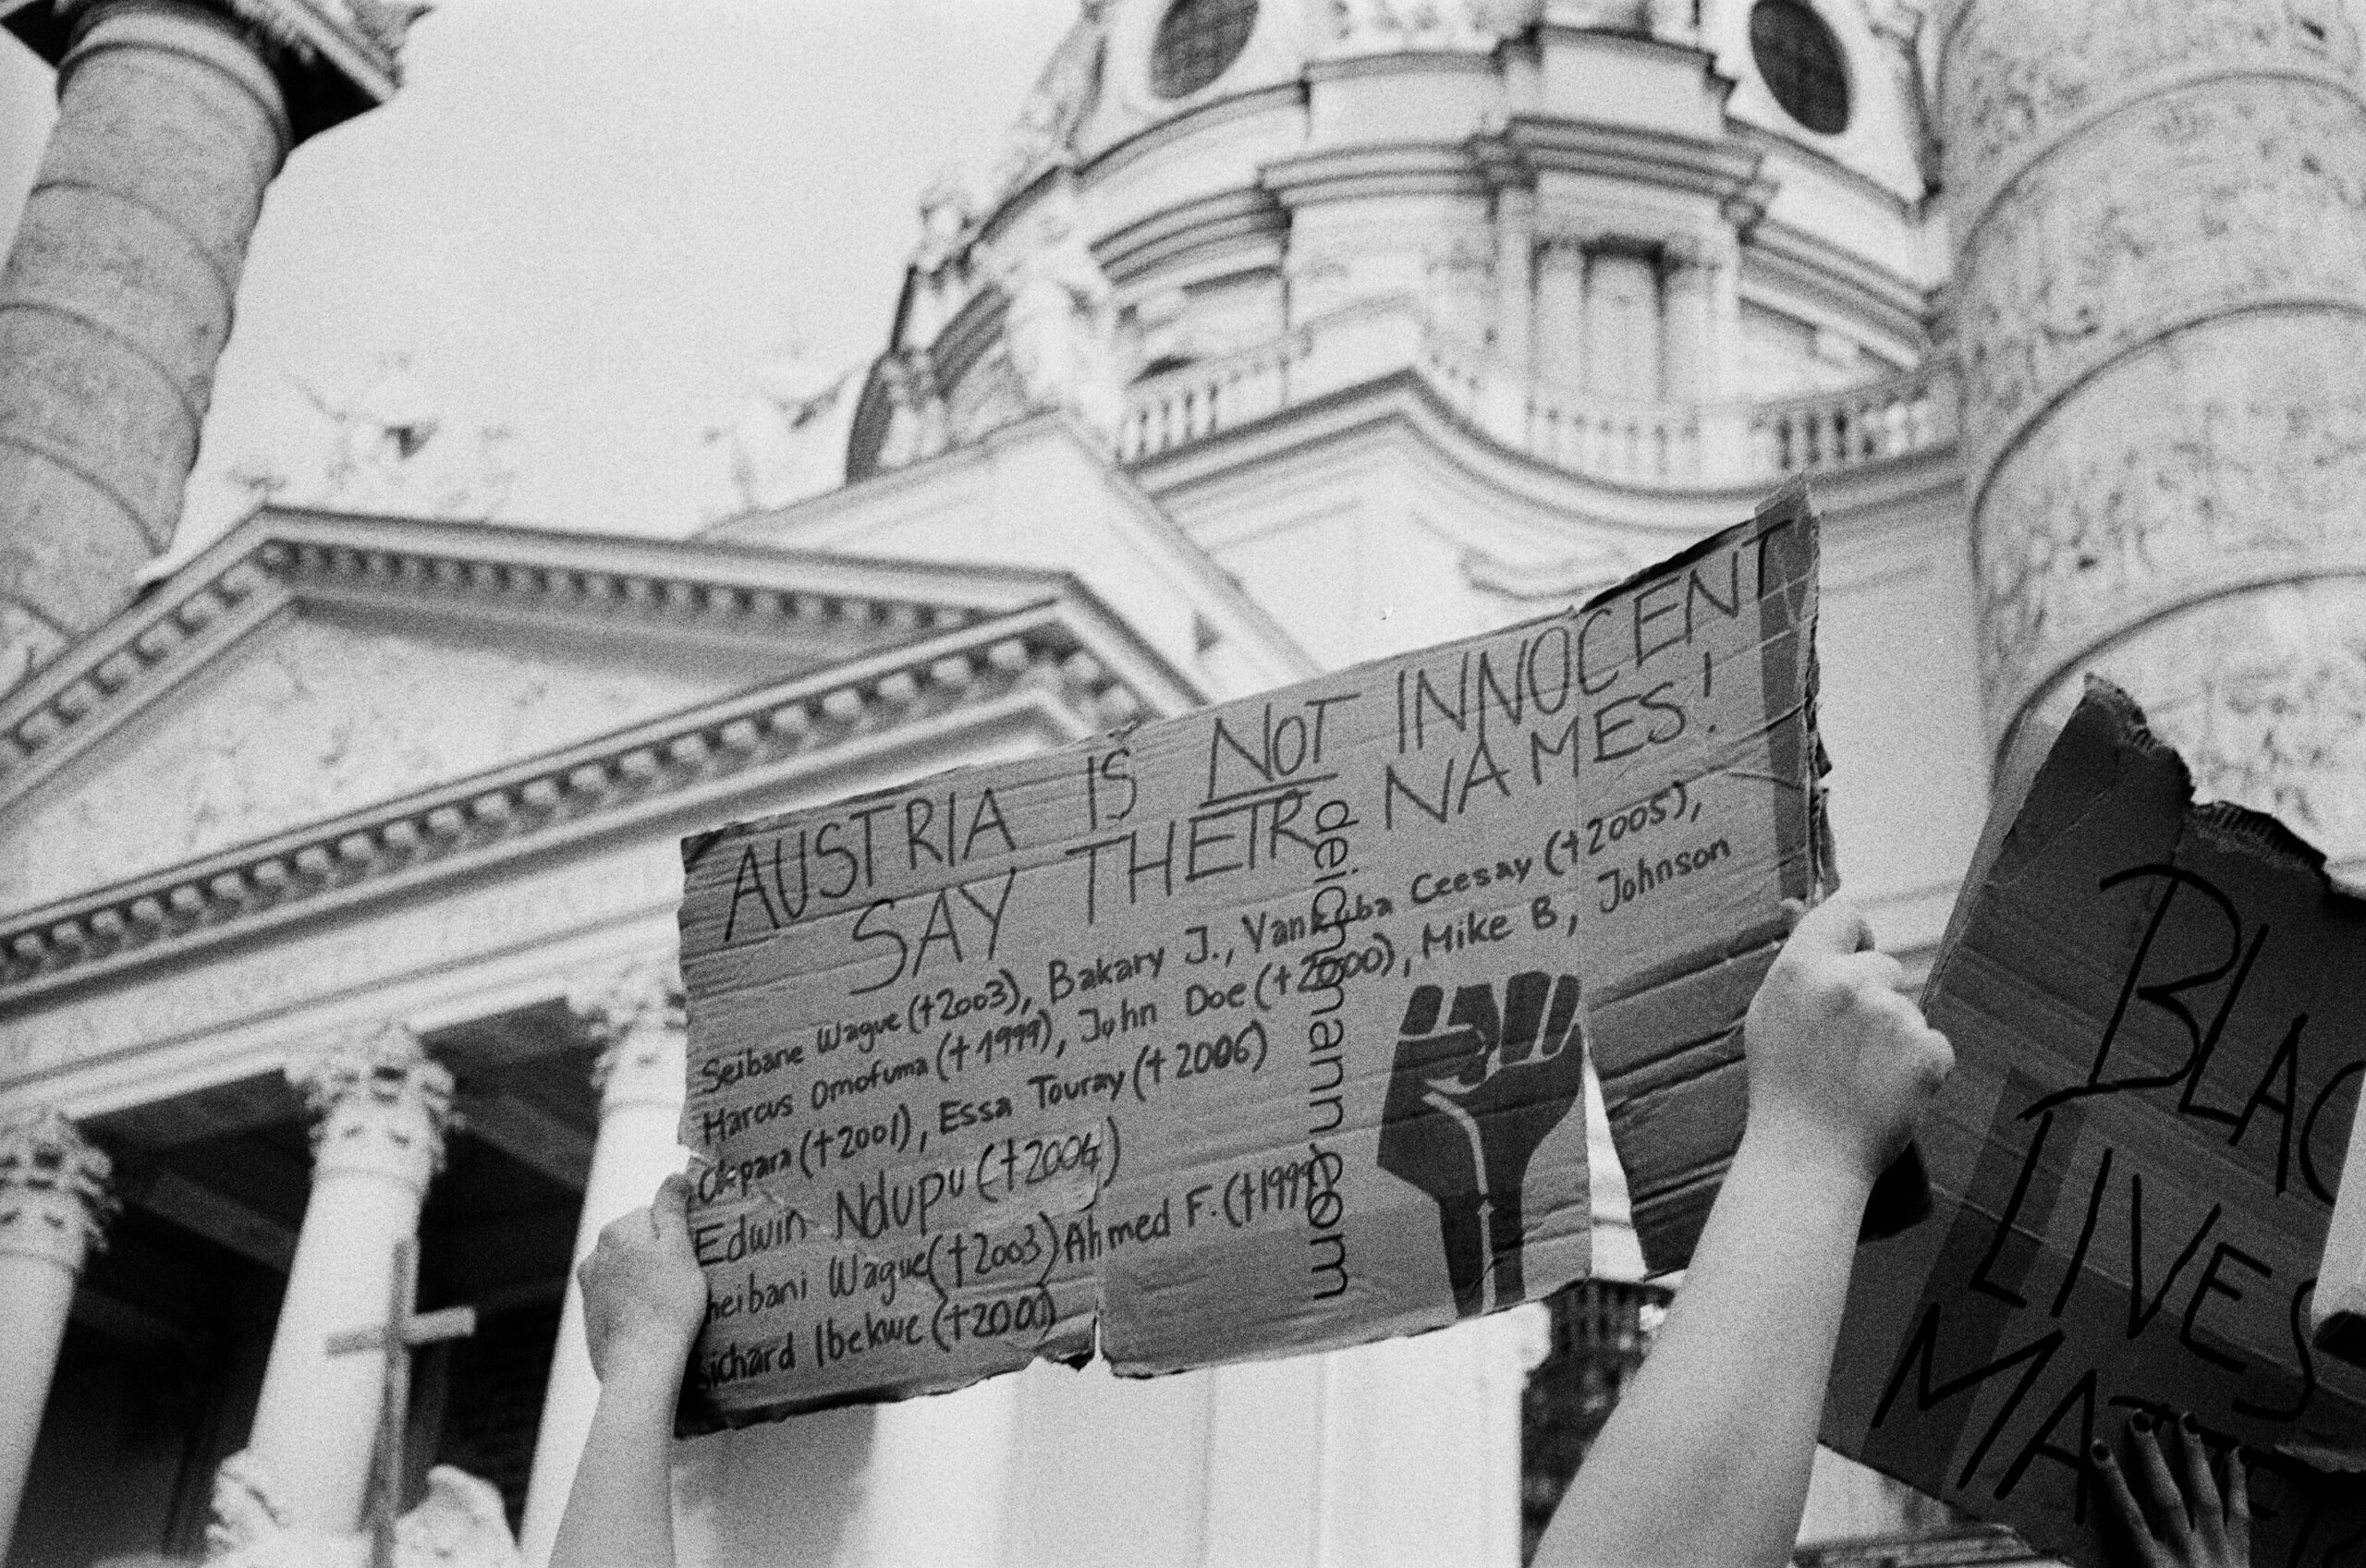 AUSTRIA IS NOT INNOCENT
SAY THEIR NAMES!
Seibane Wague (†2003), Bakary J., Vankyba Ceesay (†2005),
Marcus Omofuma (†1999), John Doe (†2000), Mike B, Johnson
Okpara (†2001), Essa Touray (†2006)
Edwin Ndupu (†2004)
heibani Wague (†2003) Ahmed F. (†1999)
Richard Ibekwe (†2000)
deichmann.com
BLAC
LIVES
MATTER